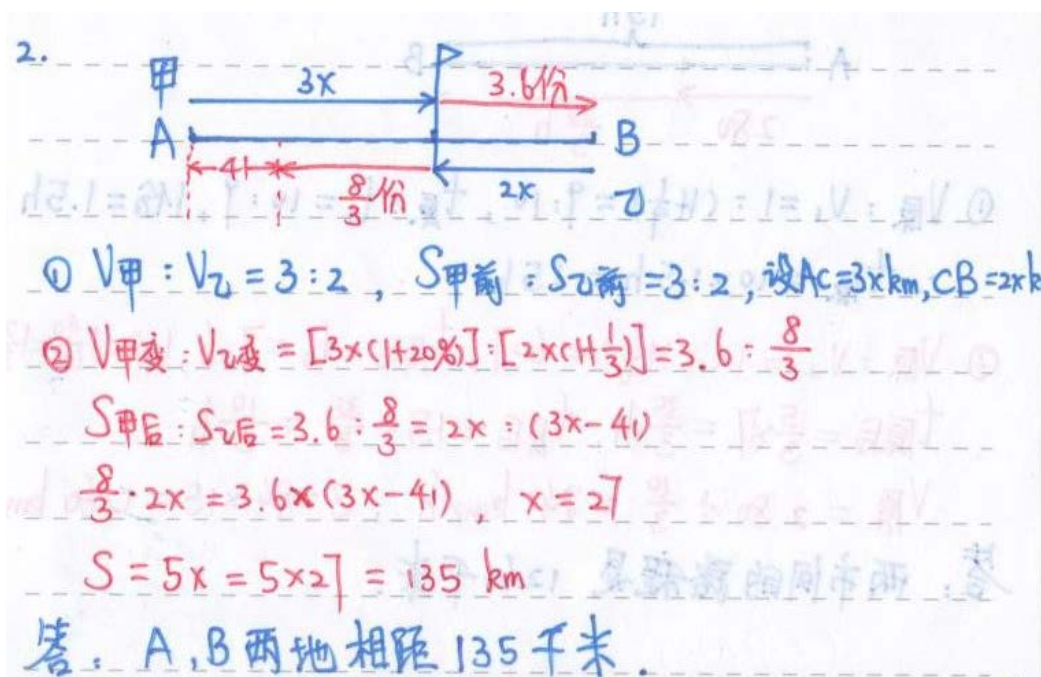 2.
甲 3x 3.6份
A B
41 8/3份 2x 乙
① V甲:V乙=3:2, S甲前:S乙前=3:2,设AC=3xkm,CB=2xk
② V甲变:V乙变=[3×(1+20%)]:[2×(1+1/3)]=3.6:8/3
S甲后:S乙后=3.6:8/3=2x:(3x-41)
8/3·2x=3.6×(3x-41), x=27
S=5x=5×27=135 km
答:A,B两地相距135千米.